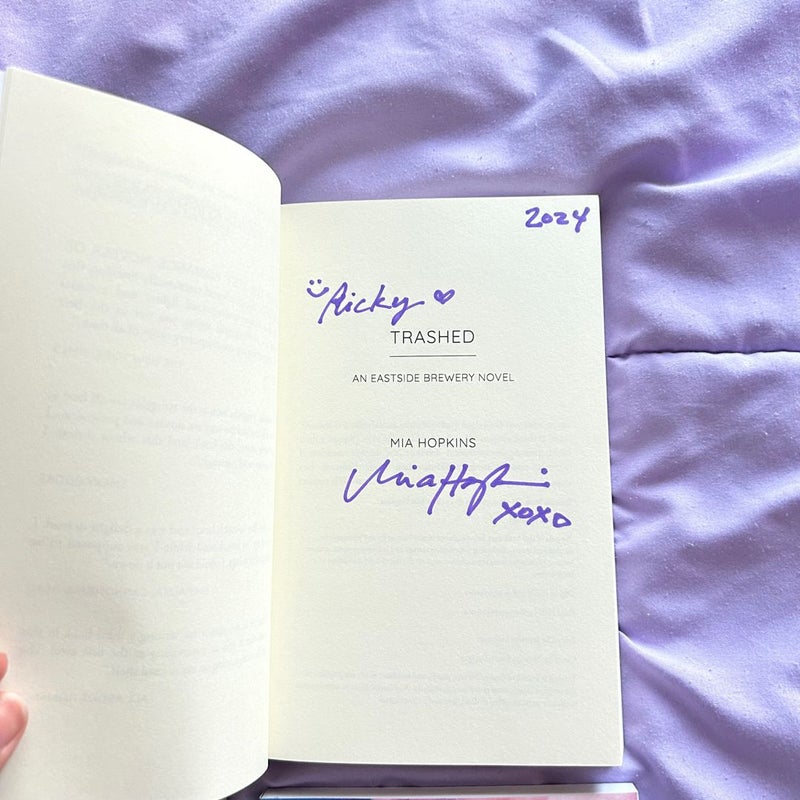 2024
Ricky
TRASHED
AN EASTSIDE BREWERY NOVEL
MIA HOPKINS
Mia Hopkins
XOXO